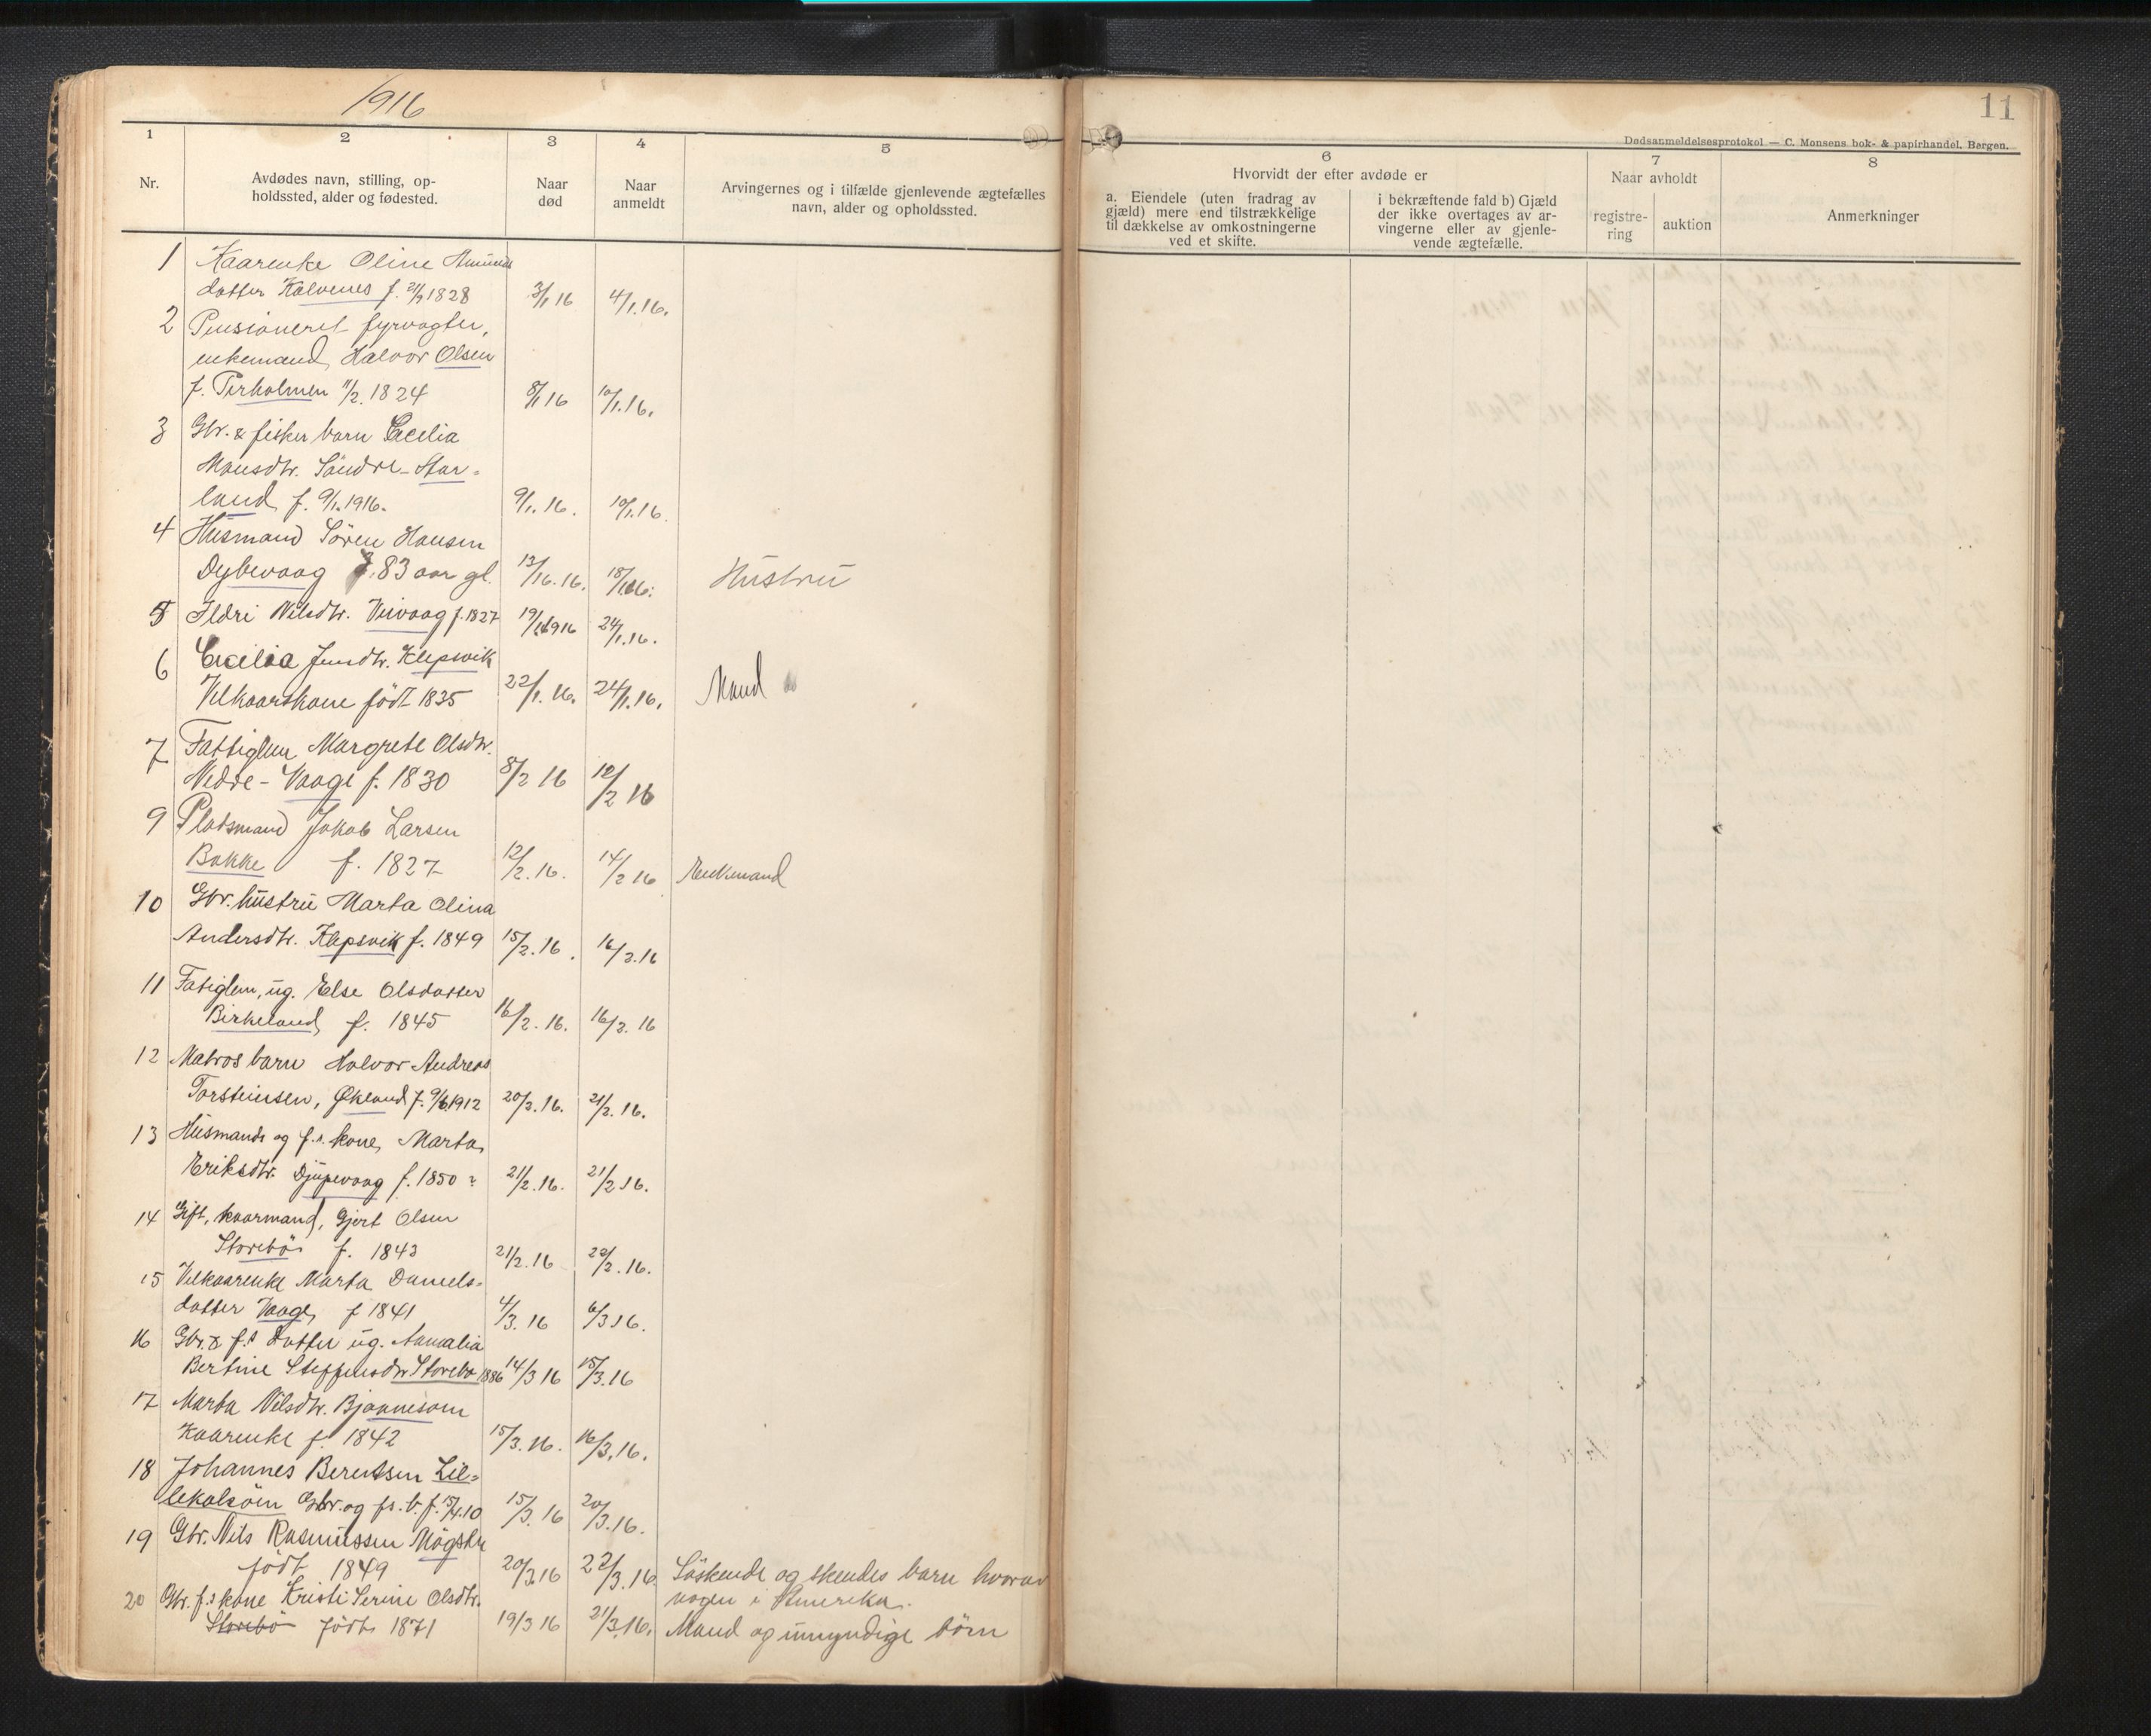 1916
11
Dødsanmeldelsesprotokol — C. Monsens bok- & papirhandel, Bergen.
1 2 3 4 5 6 7 8
Nr.
Avdødes navn, stilling, op-
holdssted, alder og fødested.
Naar
død
Naar
anmeldt
Arvingernes og i tilfælde gjenlevende ægtefælles
navn, alder og opholdssted.
Hvorvidt der efter avdøde er
a. Eiendele (uten fradrag av
gjæld) mere end tilstrækkelige
til dækkelse av omkostningerne
ved et skifte.
i bekræftende fald b) Gjæld
der ikke overtages av ar-
vingerne eller av gjenle-
vende ægtefælle.
Naar avholdt
registre-
ring
auktion
Anmerkninger
1 Kaarenke Oline Amunds
datter Kalvenes f. 1828 3/1 16 4/1.16.
2 Pensioneret fyrvogter,
enkemand, Halvor Olsen
f. Terholmen 11/2. 1824 8/1 16 10/1.16.
3 Gbr. & fisker barn Cecilia
Monsdtr. Söndre-Stor-
land, f. 9/1.1916. 9/1.16. 10/1.16.
4 Husmand Sören Hansen
Dybevaag 83 aar gl. 13/1 16. 18/1.16. Hustru
5 Ildri Nilsdtr. Vivaag f. 1827 19/1 1916 24/1.16.
6 Cecilia Jensdtr. Klepsvik
Vilkaarskone födt 1835 22/1.16. 24/1.16. Mand
7 Fattiglem Margrete Olsdtr.
Nedre-Vaage f. 1830 8/2 16 12/2 16
9 Pladsmand Jakob Larsen
Bakke f. 1827 12/2.16. 14/2 16 Enkemand
10 Gbr. hustru Marta Olina
Andersdtr. Klepsvik f. 1849 15/2.16. 16/2.16
11 Fatiglem, ug. Else Olsdatter
Birkeland, f. 1845 16/2.16. 16/2.16
12 Matros barn Halvor Andreas
Torsteinsen, Økland f. 9/6 1912 20/2.16. 21/2.16.
13 Husmands og f.s. kone, Marta
Eriksdtr. Djupevaag f. 1850 ? 21/2.16. 21/2 16.
14 Gift, kaarmand, Gjert Olsen
Storebö f. 1843 21/2.16 22/2.16.
15 Vilkaarenke Marta Daniels-
datter Vaage, f 1841 4/3.16 6/3 16.
16 Gbr. & f.s Datter ug. Aamalia
Bertine Steffensdtr Storebö 1886 14/3 16 15/3.16
17 Marta Nilsdtr. Bjånnesöen
Kaarenke f. 1842 15/3.16. 16/3.16.
18 Johannes Berentsen Lil-
lekalsöen Gbr. og fs. b. f. 15/4.10 15/3.16 20/3.16.
19 Gbr. Nils Rasmussen Mögster
födt 1849 20/3.16 22/3.16. Söskende og skendes barn hvorav
nogen i Amerika.
20 Gbr. f.s kone Kristi Serine Olsdtr.
Storebö födt 1871 19/3 16 21/3.16. Mand og umyndige börn